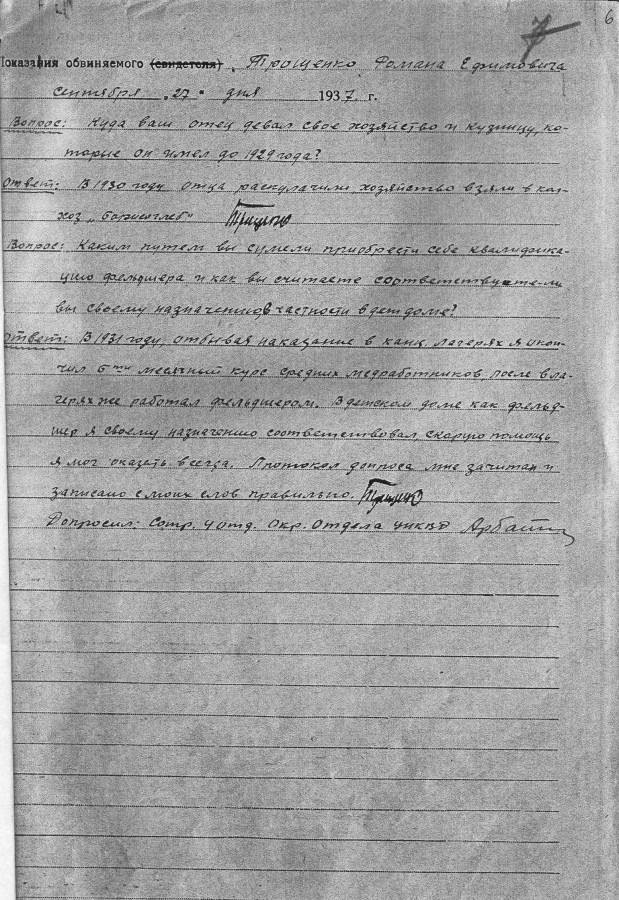 7 6
Показания обвиняемого (свидетеля) Трощенко Романа Ефимовича
сентября „27" дня 1937 г.
Вопрос: Куда ваш отец девал свое хозяйство и кузницу, ко-
торые он имел до 1929 года?
Ответ: В 1930 году отца раскулачили, хозяйство взяли в кол-
хоз „Борисоглеб"
Вопрос: Каким путем вы сумели приобрести себе квалифика-
цию фельдшера и как вы считаете соответствуете-ли
вы своему назначению в частности в детдоме?
Ответ: В 1931 году, отбывая наказание в конц. лагерях я окон-
чил 6ти месячный курс средних медработников, после в ла-
герях же работал фельдшером. В детском доме как фельд-
шер я своему назначению соответствовал, скорую помощь
я мог оказать всегда. Протокол допроса мне зачитан и
записано с моих слов правильно.
Допросил: Сотр. 4 отд. Окр. отдела НКВД